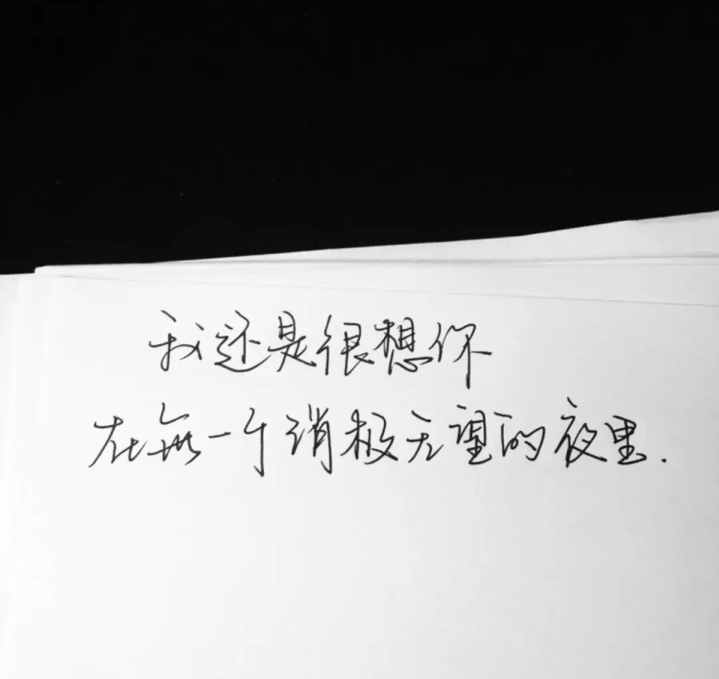 我还是很想你
在每一个消极无望的夜里.